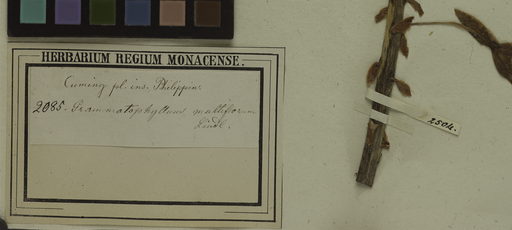 HERBARIUM REGIUM MONACENSE.
Cuming pl. ins. Philippin.
2085. Grammatophyllum multiflorum
Lindl.
2504.